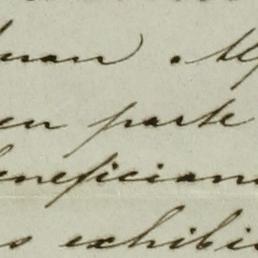 Juan
en parte
benefician
s exhibi